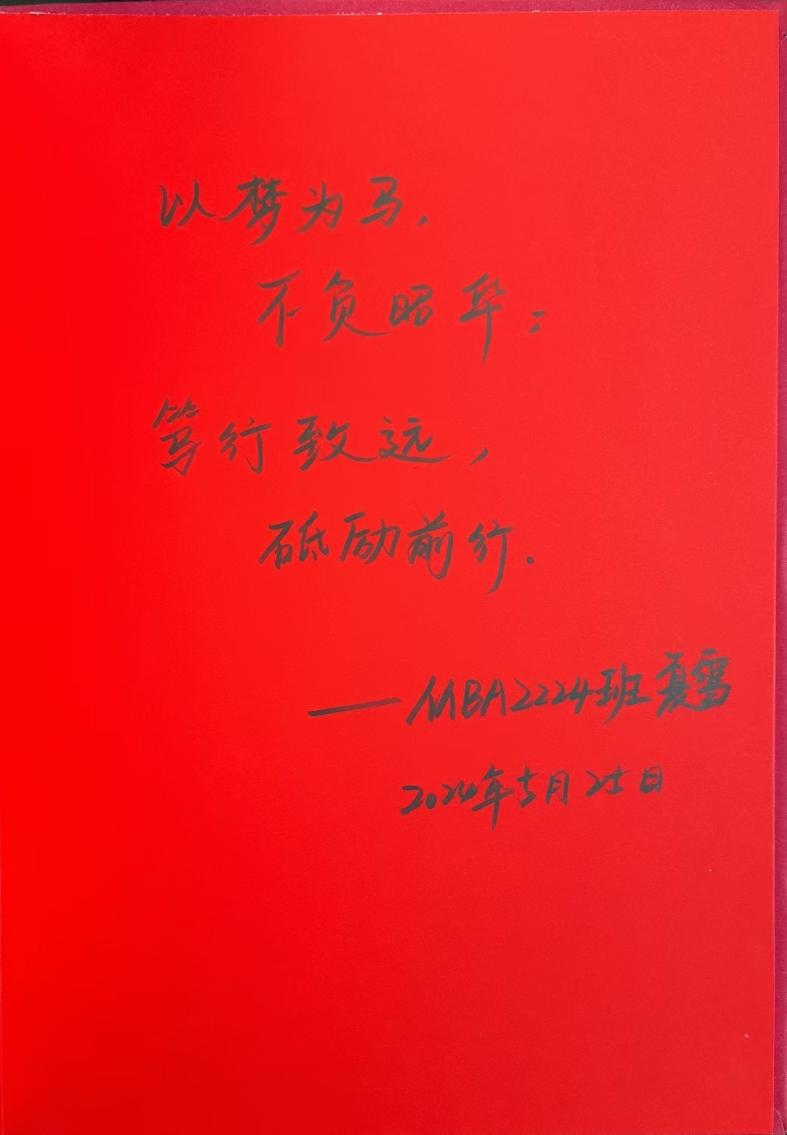 以梦为马，
不负昭华；
笃行致远，
砥励前行.
——MBA2224班夏雪
2024年5月25日